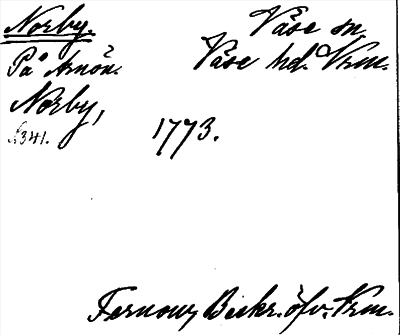 Norby. Väse sn.
På Arnön. Väse hd. Vrm.
Norby, 1773.
s. 341.
Fernow, Beskr. öfv. Vrm.